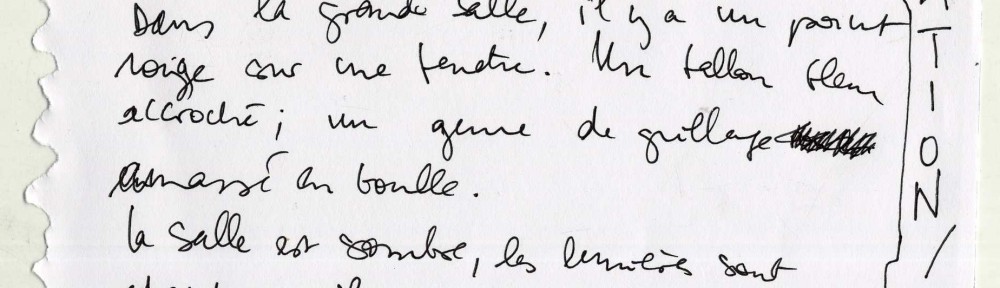 Dans la grande salle, il y a un point
rouge sur une fenetre. Un ballon bleu
accroché ; un genre de grillage
amassé en boulle.
la salle est sombre, les lumières sont
TION/